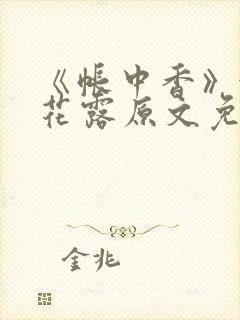 《帐中香》
花露原文免
金兆